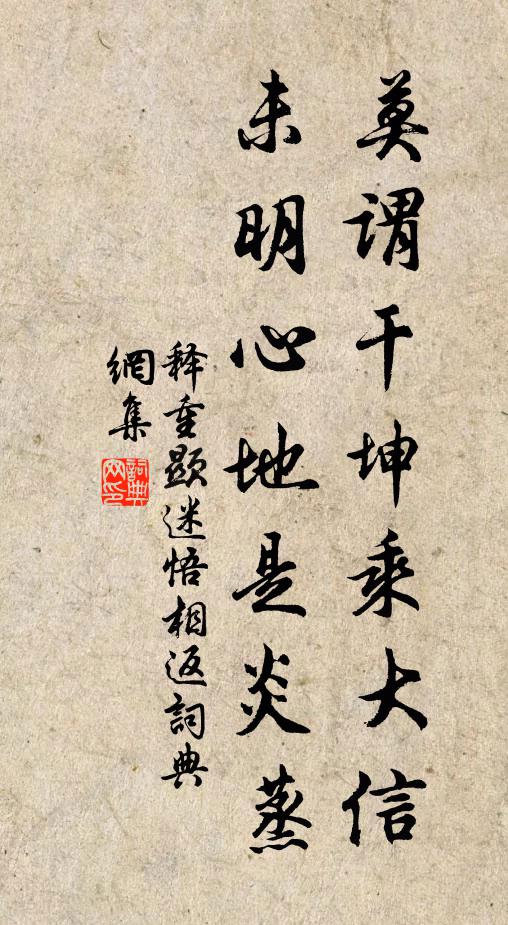 莫谓干坤乘大信
未明心地是炎蒸
释重顯迷悟相返詞典
網集
詞典
网印